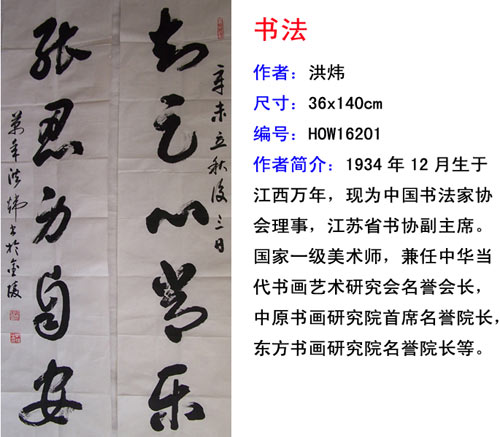 知足心常乐
辛未立秋後三日
能忍身自安
萬年洪煒书於金陵
书法
作者：洪炜
尺寸：36x140cm
编号：HOW16201
作者简介：1934 年 12 月生于
江西万年，现为中国书法家协
会理事，江苏省书协副主席。
国家一级美术师，兼任中华当
代书画艺术研究会名誉会长，
中原书画研究院首席名誉院长，
东方书画研究院名誉院长等。